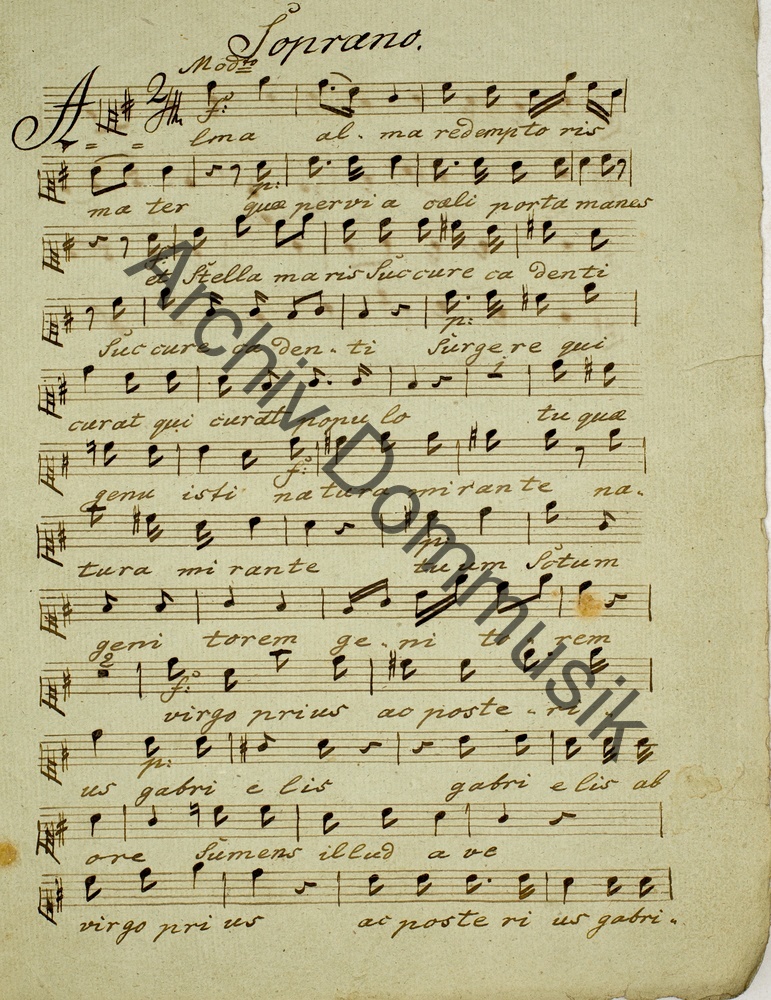 Soprano.
Modto
A
f:
lma al. ma redempto ris
p:
ma ter quæ pervi a cæli porta manes
et Stella maris Succure ca denti
p:
Succure ca den. ti Surge re qui
curat qui curat popu lo tu quæ
f:
genu isti natura mirante na.
p:
tura mi rante tuum Sctum
geni torem ge. ni to. rem
2
f:
virgo prius ac poste. ri.
p:
us gabri e lis gabri e lis ab
ore Sumens illud a ve
virgo pri us ac poste ri us gabri.
Archiv Dommusik